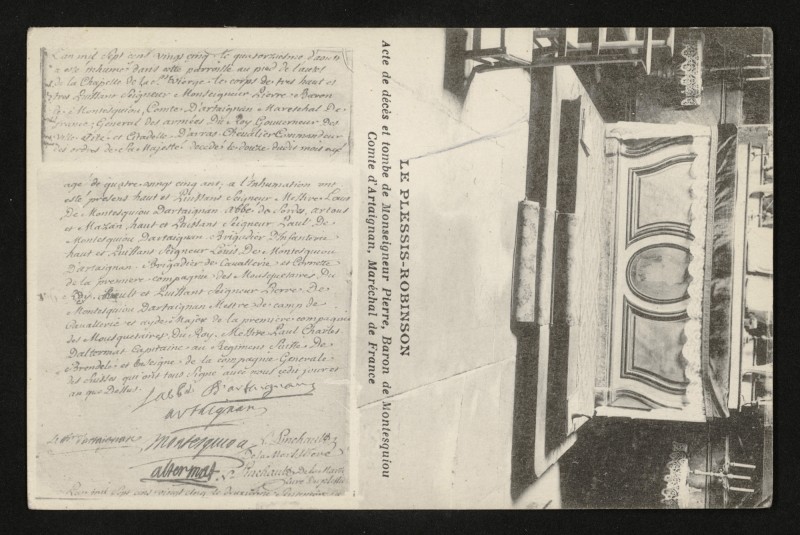 L'an mil sept cent vingt cinq le quatorzieme d'aoust
a esté inhumé dans cette parroisse au pied de l'autel
de la Chapelle de la Ste Vierge le corps de tres haut et
tres Puissant Seigneur Monseigneur Pierre Baron
de Montesquiou, Comte D'artaignan Mareschal De
france, General des armées Du Roy Gouverneur des
Ville, Cité et Citadelle D'arras Chevalier Commandeur
des ordres de sa Majesté decedé le douze dudit mois
agé de quatre vingts cinq ans, a l'Inhumation ont
esté present haut et Puissant Seigneur Messire Louis
De Montesquiou Dartaignan Abbé de Sordes, artous
et Mazan, haut et Puissant Seigneur Paul De
Montesquiou Dartaignan Brigadier D'Infanterie
haut et Puissant Seigneur Loüis De Montesquiou
D'artaignan Brigadier de Cavallerie et Cornette
de la premiere compagnie des Mousquetaires Du
Roy, hault et Puissant Seigneur Pierre De
Montesquiou Dartaignan Mestre de camp de
Cavallerie et ayde Major de la premiere compagnie
des Mousquetaires Du Roy, Messire Paul Charles
Daltermat Capitaine au Regiment Suisse De
Brendele et Enseigne de la compagnie Generale
des Suisses qui ont tous signé avec nous jour et
an que Dessus
l'abbé D'artaignan
artaignan
artaignan Montesquiou Pinchault
altermat Pinchault
L'an mil sept cent vingt cinq le
LE PLESSIS-ROBINSON
Acte de décès et tombe de Monseigneur Pierre, Baron de Montesquiou
Comte d'Artaignan, Maréchal de France